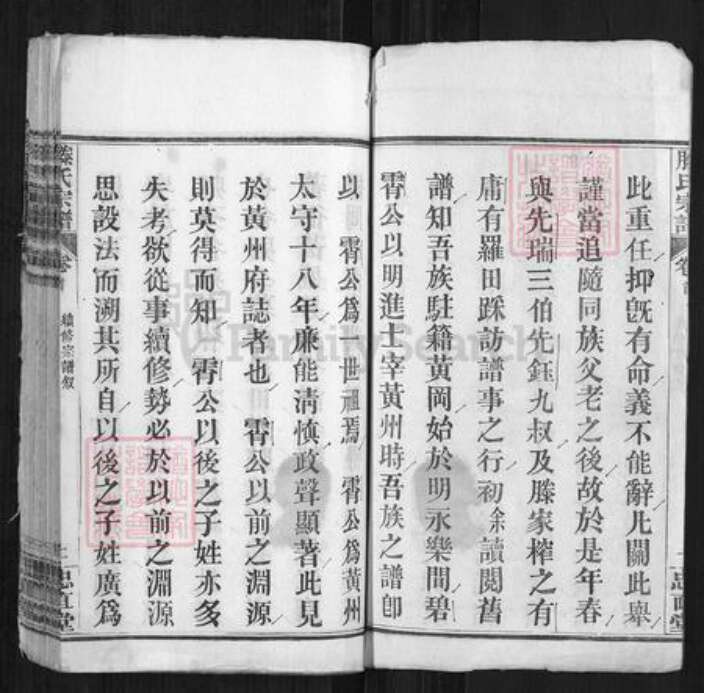 此重任抑旣有命義不能辭凡關此舉
謹當追隨同族父老之後故於是年春
與先瑞三伯先鈺九叔及滕家榨之有
庸有羅田踩訪譜事之行初余讀閱舊
譜知吾族駐籍黃岡始於明永樂間碧
霄公以明進士宰黃州時吾族之譜卽
以 霄公爲一世祖焉 霄公爲黃州
太守十八年廉能淸慎政聲顯著此見
於黃州府誌者也 霄公以前之淵源
則莫得而知 霄公以後之子姓亦多
失考欲從事續修勢必於以前之淵源
思設法而溯其所自以後之子姓廣爲
滕氏宗譜
卷
續修宗譜叙
二
忠直堂
FamilySearch